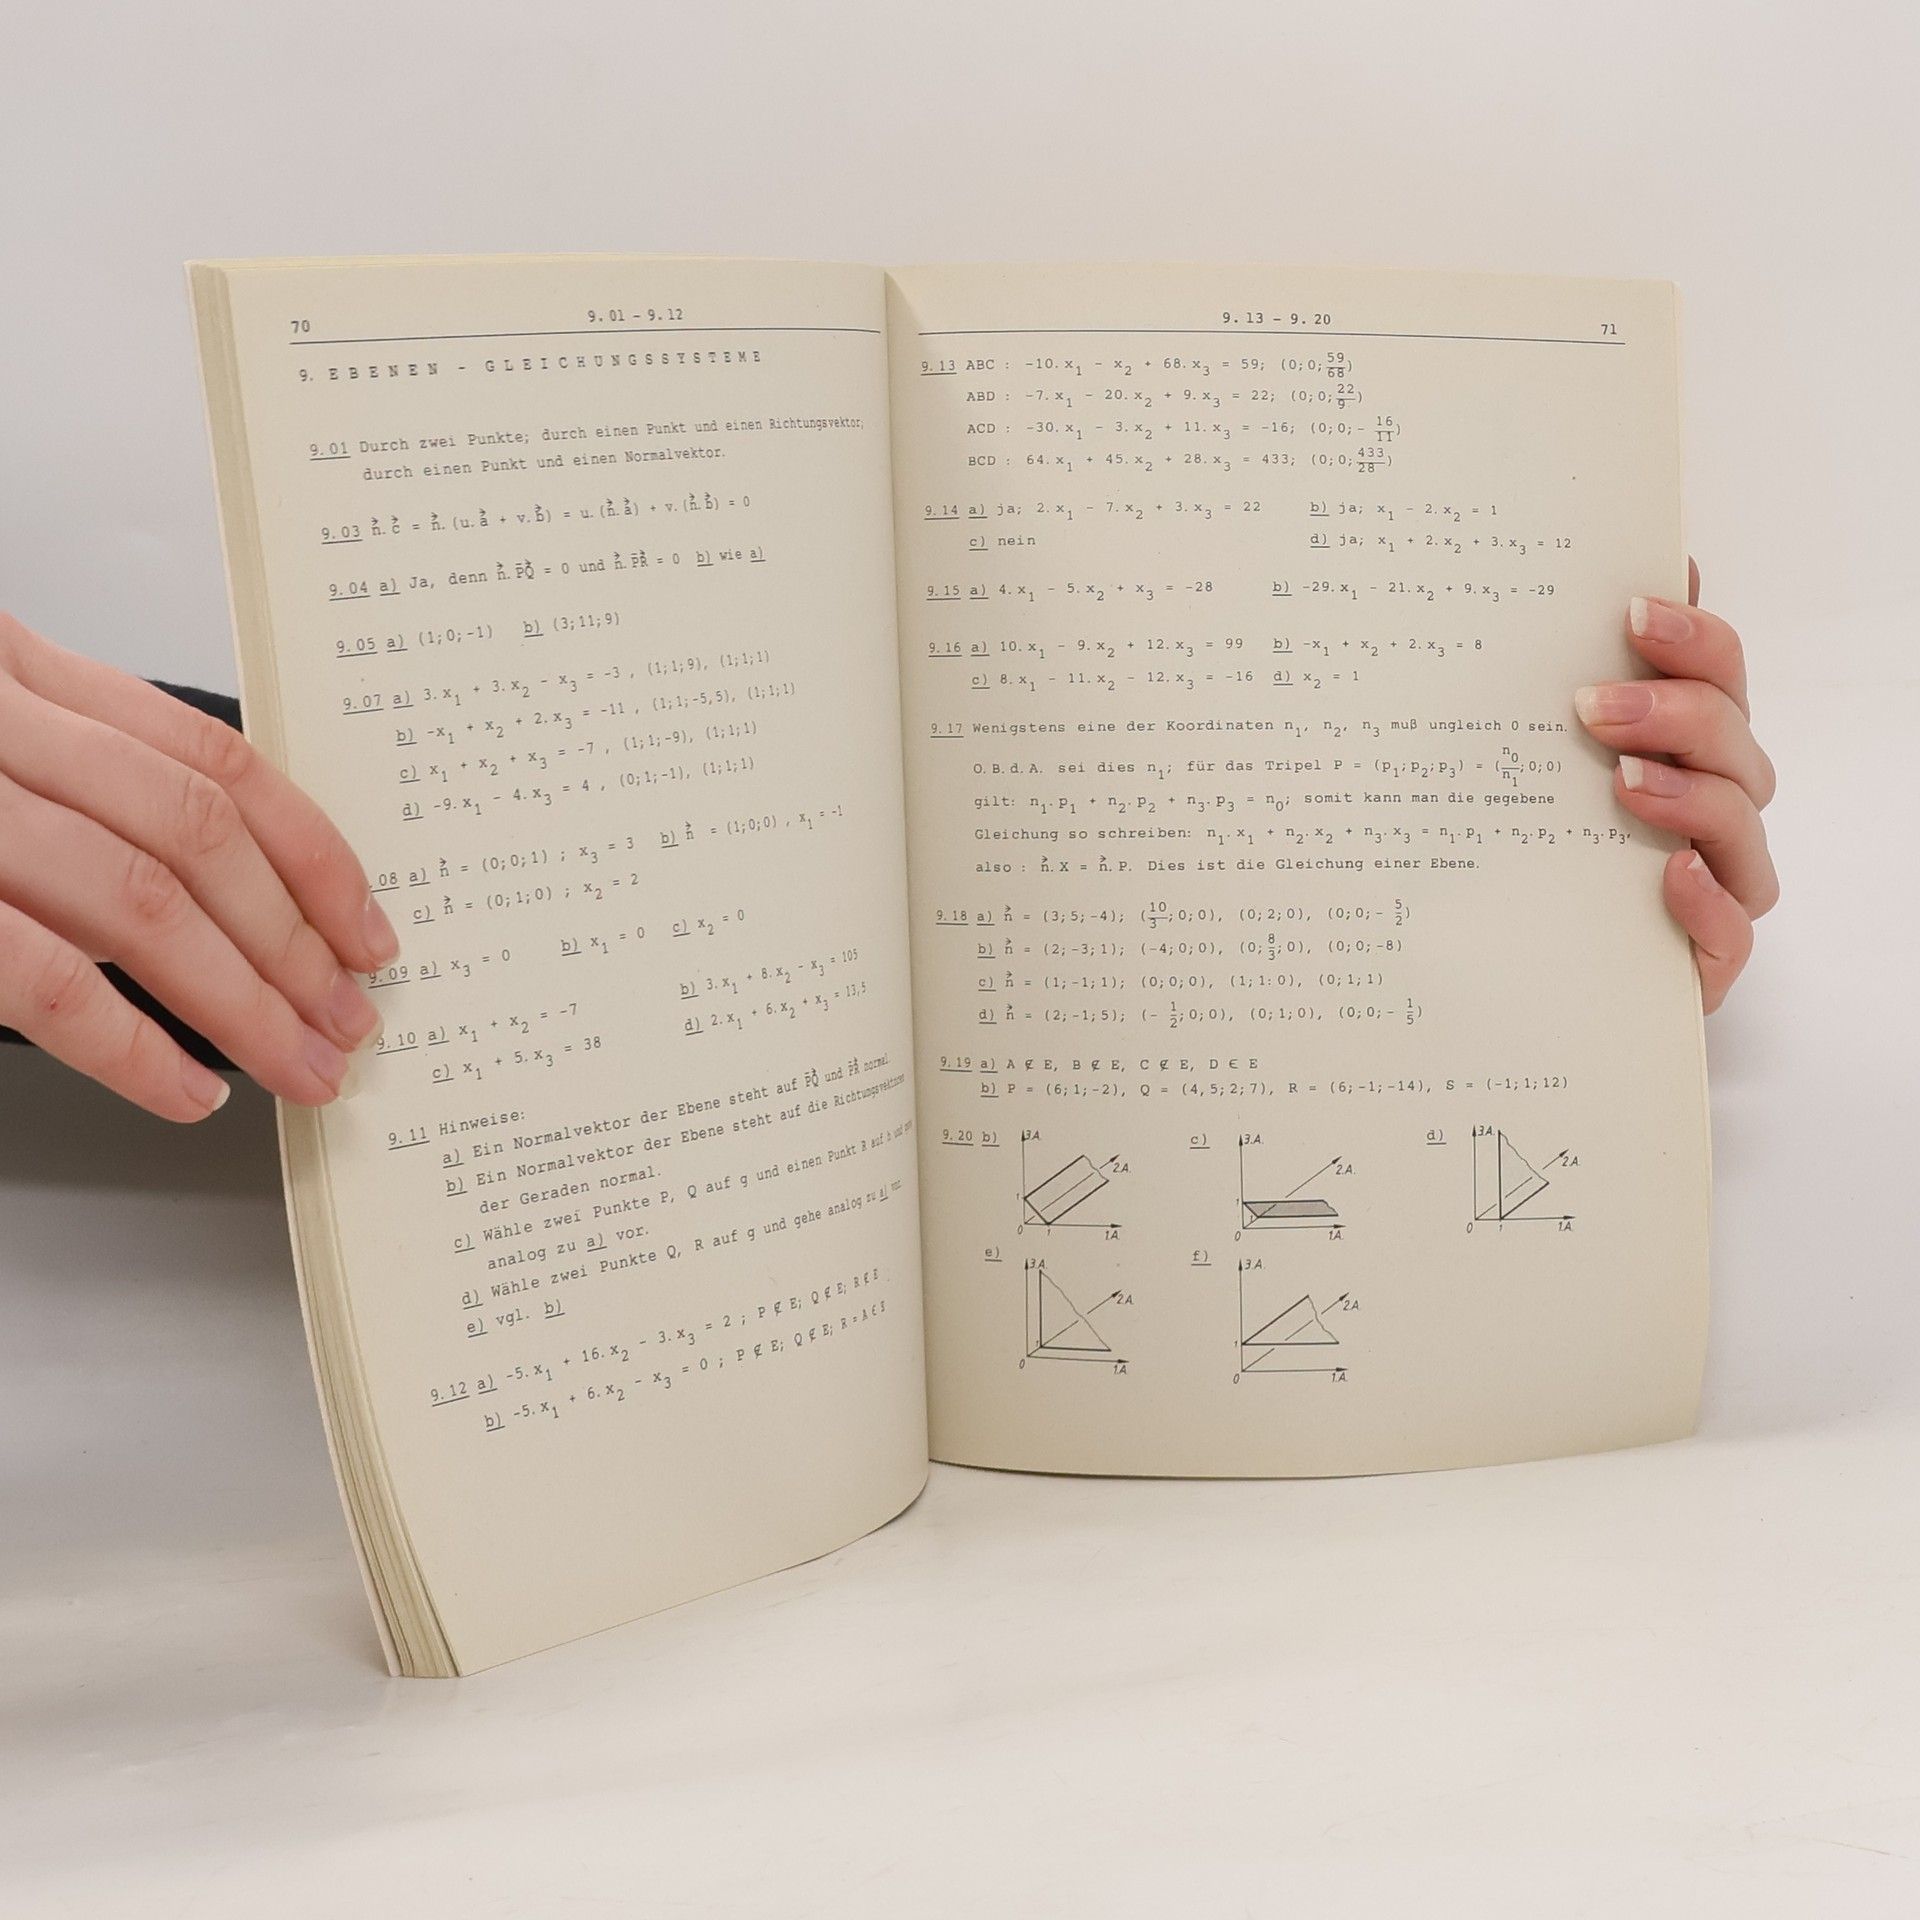 70
9.01 - 9.12
9. EBENEN - GLEICHUNGSSYSTEME
9.01 Durch zwei Punkte; durch einen Punkt und einen Richtungsvektor;
durch einen Punkt und einen Normalvektor.
9.03 n⃗.c⃗ = n⃗.(u.a⃗ + v.b⃗) = u.(n⃗.a⃗) + v.(n⃗.b⃗) = 0
9.04 a) Ja, denn n⃗.PQ⃗ = 0 und n⃗.PR⃗ = 0 b) wie a)
9.05 a) (1;0;-1) b) (3;11;9)
9.07 a) 3.x₁ + 3.x₂ - x₃ = -3 , (1;1;9), (1;1;1)
b) -x₁ + x₂ + 2.x₃ = -11 , (1;1;-5,5), (1;1;1)
c) x₁ + x₂ + x₃ = -7 , (1;1;-9), (1;1;1)
d) -9.x₁ - 4.x₃ = 4 , (0;1;-1), (1;1;1)
.08 a) n⃗ = (0;0;1) ; x₃ = 3 b) n⃗ = (1;0;0) , x₁ = -1
c) n⃗ = (0;1;0) ; x₂ = 2
9.09 a) x₃ = 0 b) x₁ = 0 c) x₂ = 0
9.10 a) x₁ + x₂ = -7 b) 3.x₁ + 8.x₂ - x₃ = 105
c) x₁ + 5.x₃ = 38 d) 2.x₁ + 6.x₂ + x₃ = 13,5
9.11 Hinweise:
a) Ein Normalvektor der Ebene steht auf PQ⃗ und PR⃗ normal.
b) Ein Normalvektor der Ebene steht auf die Richtungsvektoren
der Geraden normal.
c) Wähle zwei Punkte P, Q auf g und einen Punkt R auf h und
analog zu a) vor.
d) Wähle zwei Punkte Q, R auf g und gehe analog zu a) vor.
e) vgl. b)
9.12 a) -5.x₁ + 16.x₂ - 3.x₃ = 2 ; P ∉ E; Q ∉ E; R ∉ E
b) -5.x₁ + 6.x₂ - x₃ = 0 ; P ∉ E; Q ∉ E; R = A ∈ E
9.13 - 9.20
71
9.13 ABC : -10.x₁ - x₂ + 68.x₃ = 59; (0;0;59/68)
ABD : -7.x₁ - 20.x₂ + 9.x₃ = 22; (0;0;22/9)
ACD : -30.x₁ - 3.x₂ + 11.x₃ = -16; (0;0;- 16/11)
BCD : 64.x₁ + 45.x₂ + 28.x₃ = 433; (0;0;433/28)
9.14 a) ja; 2.x₁ - 7.x₂ + 3.x₃ = 22 b) ja; x₁ - 2.x₂ = 1
c) nein d) ja; x₁ + 2.x₂ + 3.x₃ = 12
9.15 a) 4.x₁ - 5.x₂ + x₃ = -28 b) -29.x₁ - 21.x₂ + 9.x₃ = -29
9.16 a) 10.x₁ - 9.x₂ + 12.x₃ = 99 b) -x₁ + x₂ + 2.x₃ = 8
c) 8.x₁ - 11.x₂ - 12.x₃ = -16 d) x₂ = 1
9.17 Wenigstens eine der Koordinaten n₁, n₂, n₃ muß ungleich 0 sein.
O.B.d.A. sei dies n₁; für das Tripel P = (p₁;p₂;p₃) = (n₀/n₁;0;0)
gilt: n₁.p₁ + n₂.p₂ + n₃.p₃ = n₀; somit kann man die gegebene
Gleichung so schreiben: n₁.x₁ + n₂.x₂ + n₃.x₃ = n₁.p₁ + n₂.p₂ + n₃.p₃,
also : n⃗.X = n⃗.P. Dies ist die Gleichung einer Ebene.
9.18 a) n⃗ = (3;5;-4); (10/3;0;0), (0;2;0), (0;0;- 5/2)
b) n⃗ = (2;-3;1); (-4;0;0), (0;8/3;0), (0;0;-8)
c) n⃗ = (1;-1;1); (0;0;0), (1;1:0), (0;1;1)
d) n⃗ = (2;-1;5); (- 1/2;0;0), (0;1;0), (0;0;- 1/5)
9.19 a) A ∉ E, B ∉ E, C ∉ E, D ∈ E
b) P = (6;1;-2), Q = (4,5;2;7), R = (6;-1;-14), S = (-1;1;12)
9.20 b) 3.A. 2.A. 1 0 1 1.A.
c) 3.A. 2.A. 1 0 1 1.A.
d) 3.A. 2.A. 0 1 1.A.
e) 3.A. 2.A. 1 0 1.A.
f) 3.A. 2.A. 1 0 1.A.